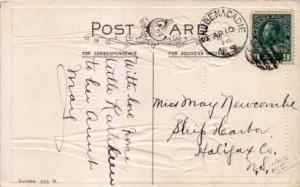 POST CARD
FOR CORRESPONDENCE
FOR ADDRESS
SHUBENACADIE
AP 10
14
N.S.
With love from
Little Kathleen
to her Aunt
May
Miss May Newcombe
Ship Harbor
Halifax Co.
N.S.